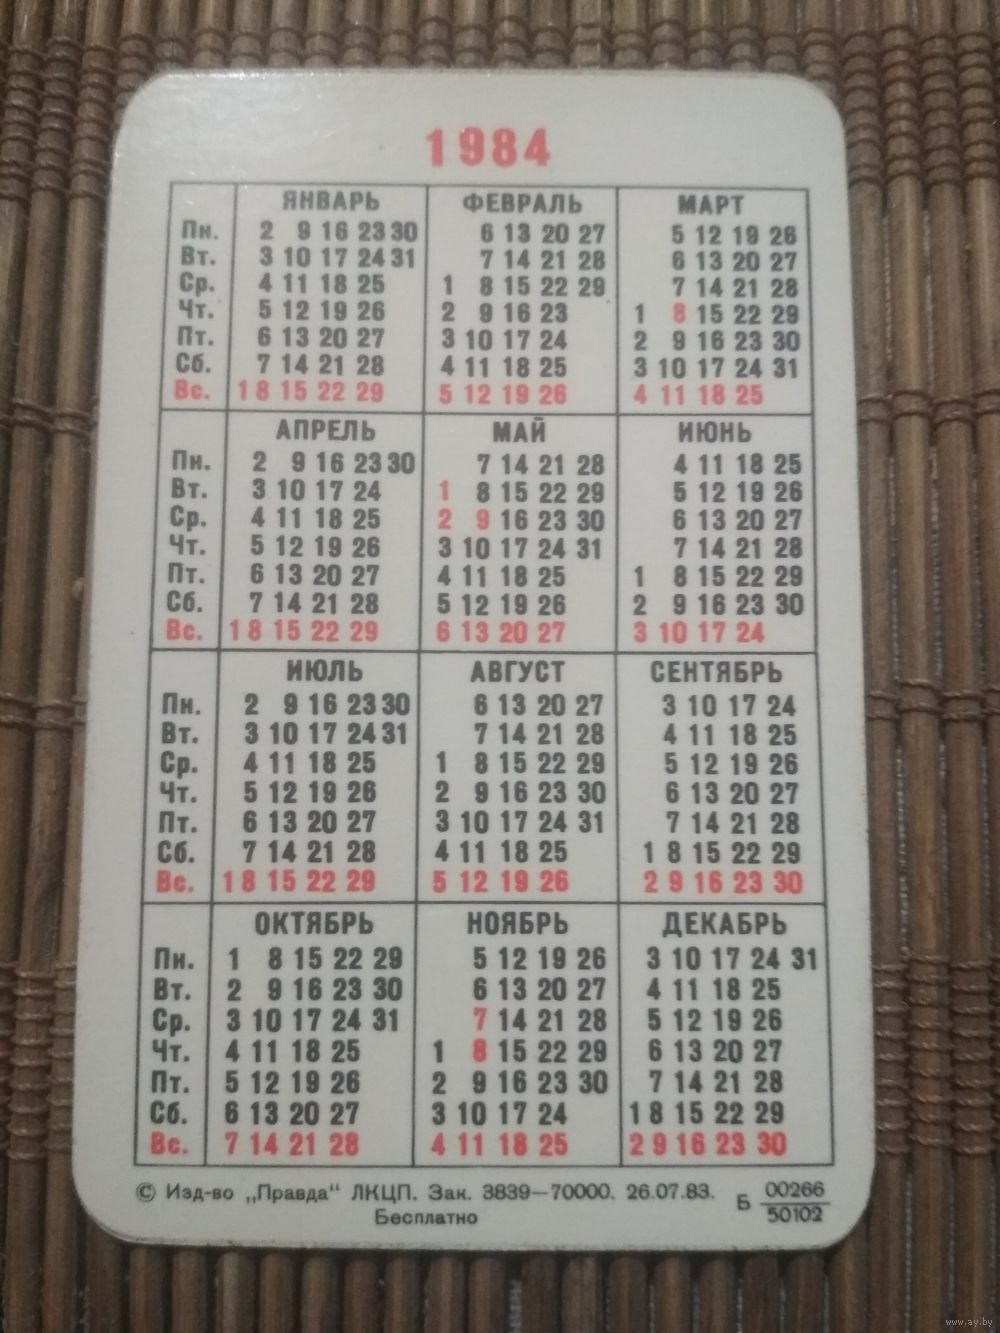 1984
ЯНВАРЬ ФЕВРАЛЬ МАРТ
Пн. 2 9 16 23 30 6 13 20 27 5 12 19 26
Вт. 3 10 17 24 31 7 14 21 28 6 13 20 27
Ср. 4 11 18 25 1 8 15 22 29 7 14 21 28
Чт. 5 12 19 26 2 9 16 23 1 8 15 22 29
Пт. 6 13 20 27 3 10 17 24 2 9 16 23 30
Сб. 7 14 21 28 4 11 18 25 3 10 17 24 31
Вс. 1 8 15 22 29 5 12 19 26 4 11 18 25
АПРЕЛЬ МАЙ ИЮНЬ
Пн. 2 9 16 23 30 7 14 21 28 4 11 18 25
Вт. 3 10 17 24 1 8 15 22 29 5 12 19 26
Ср. 4 11 18 25 2 9 16 23 30 6 13 20 27
Чт. 5 12 19 26 3 10 17 24 31 7 14 21 28
Пт. 6 13 20 27 4 11 18 25 1 8 15 22 29
Сб. 7 14 21 28 5 12 19 26 2 9 16 23 30
Вс. 1 8 15 22 29 6 13 20 27 3 10 17 24
ИЮЛЬ АВГУСТ СЕНТЯБРЬ
Пн. 2 9 16 23 30 6 13 20 27 3 10 17 24
Вт. 3 10 17 24 31 7 14 21 28 4 11 18 25
Ср. 4 11 18 25 1 8 15 22 29 5 12 19 26
Чт. 5 12 19 26 2 9 16 23 30 6 13 20 27
Пт. 6 13 20 27 3 10 17 24 31 7 14 21 28
Сб. 7 14 21 28 4 11 18 25 1 8 15 22 29
Вс. 1 8 15 22 29 5 12 19 26 2 9 16 23 30
ОКТЯБРЬ НОЯБРЬ ДЕКАБРЬ
Пн. 1 8 15 22 29 5 12 19 26 3 10 17 24 31
Вт. 2 9 16 23 30 6 13 20 27 4 11 18 25
Ср. 3 10 17 24 31 7 14 21 28 5 12 19 26
Чт. 4 11 18 25 1 8 15 22 29 6 13 20 27
Пт. 5 12 19 26 2 9 16 23 30 7 14 21 28
Сб. 6 13 20 27 3 10 17 24 1 8 15 22 29
Вс. 7 14 21 28 4 11 18 25 2 9 16 23 30
© Изд-во „Правда“ ЛКЦП. Зак. 3839—70000. 26.07.83. Б 00266
Бесплатно 50102
www.ay.by